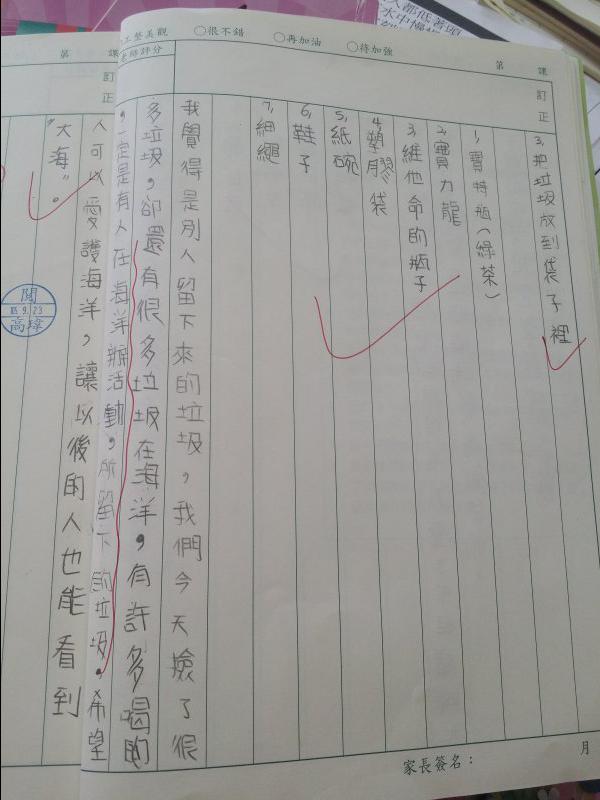 工整美觀 ○很不錯 ○再加油 ○待加強
老師評分
第 課
訂正
3,把垃圾放到袋子裡
1,寶特瓶(綠茶)
2,寶力龍
3,維他命的瓶子
4,塑膠袋
5,紙碗
6,鞋子
7,細繩
我覺得是別人留下來的垃圾,我們今天撿了很
多垃圾,卻還有很多垃圾在海洋,有許多喝的
,一定是有人在海洋辦活動,所留下的垃圾。希望
人可以愛護海洋,讓以後的人也能看到
"大海"。
第 課
訂正
閱
9.23
高瑋
家長簽名:
月